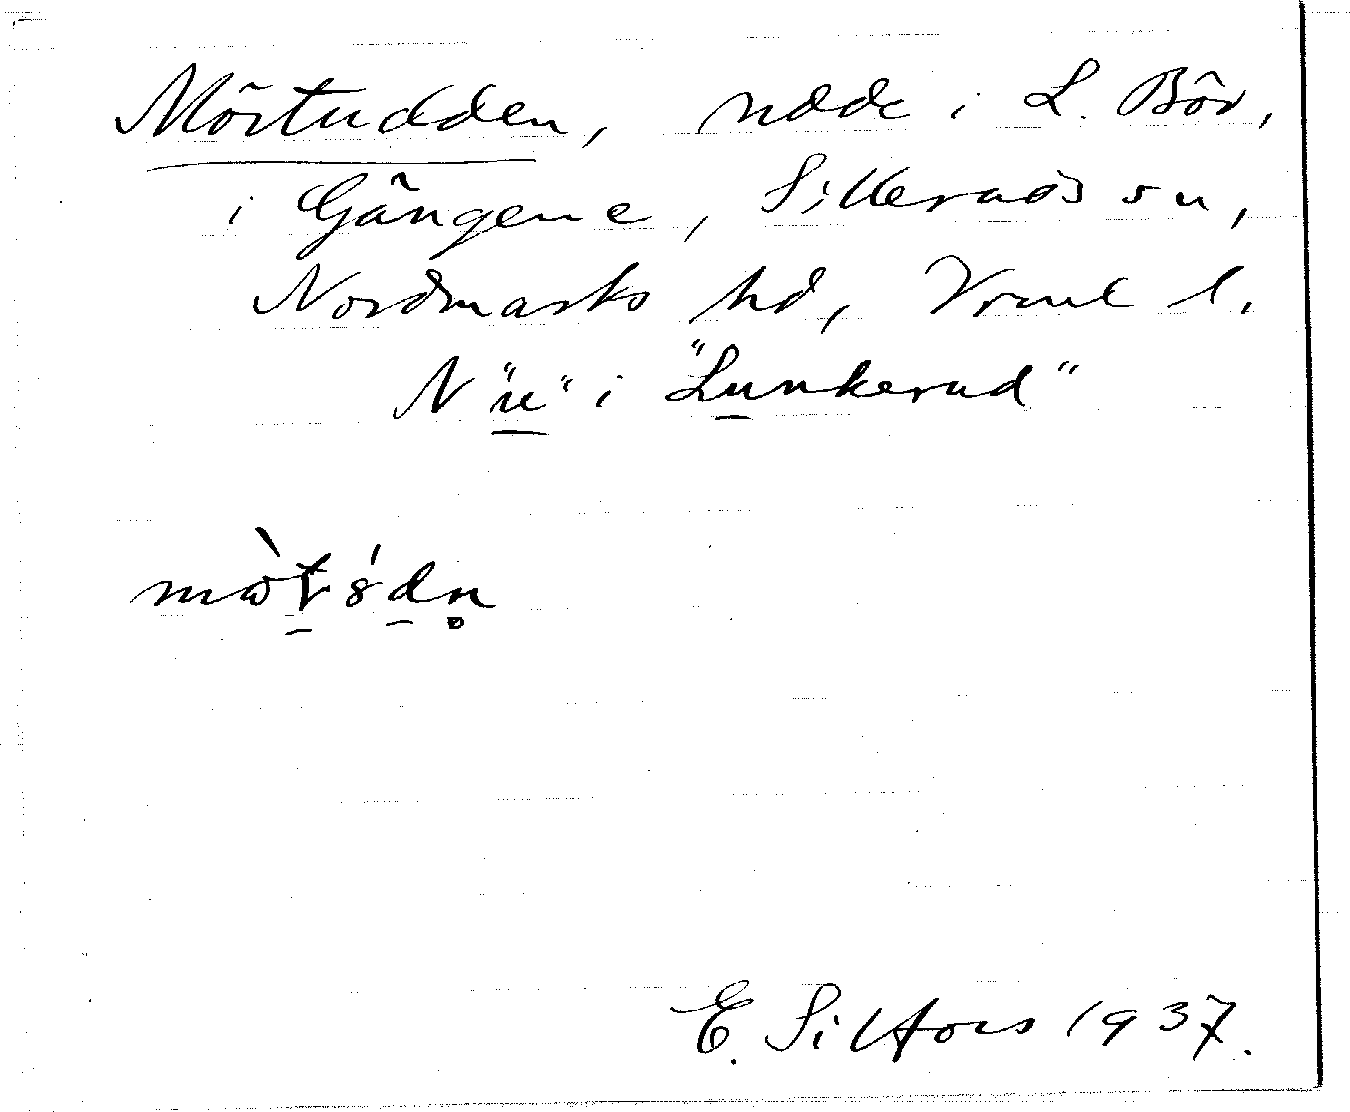 Mörtudden, udde i L. Bör,
i Gängene, Sillerads sn,
Nordmarks hd, Vrml l.
N "u" i "Lunkerud"
E. Silfors 1937.